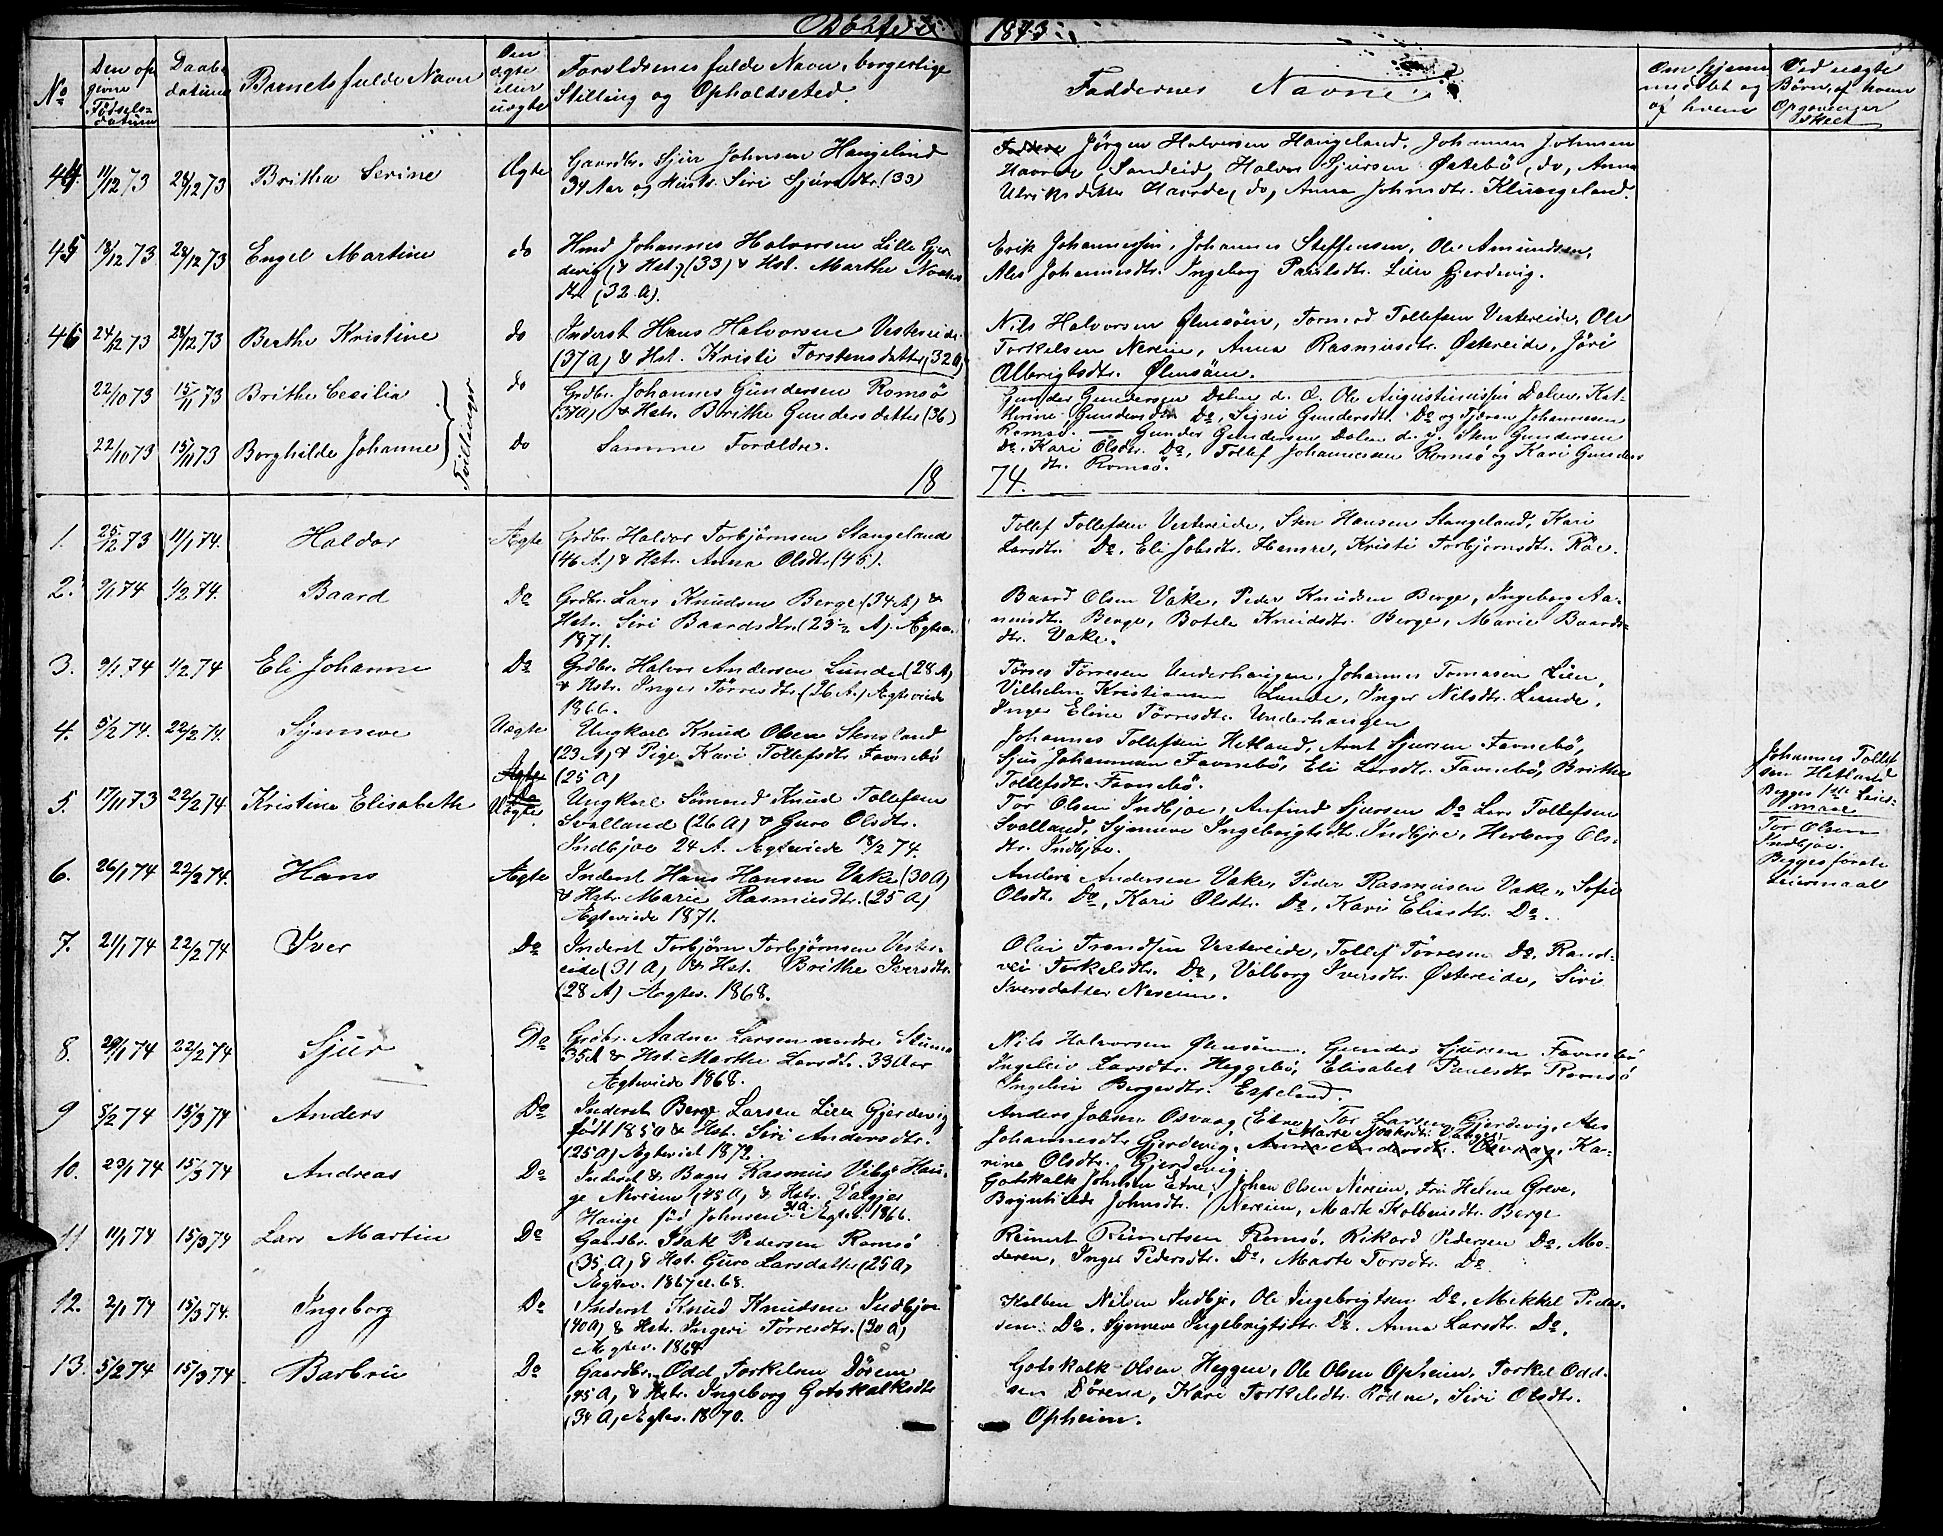 Døbte 1873.
No
Den opgivne Fødselsdatum
Daabsdatum
Barnets fulde Navn
Om ægte eller uægte
Forældrenes fulde Navn, borgerlige Stilling og Opholdssted.
Faddernes Navne
Om hjemmedøbt og af hvem
Ved uægte Børn, af hvem Opgivelser skeet
44. 11/12 73 28/12 73 Britha Serine Ægte Gaardbr. Sjur Johnsen Haugeland
34 Aar og Hustr. Siri Sjursdtr. (33)
Jørgen Halvorsen Haugeland, Johannes Johnsen
Havrde Sandeid, Halvor Sjursen Østebø, do, Anna
Ulriksdatter Havrde, do, Anna Johnsdtr. Klungeland.
45 18/12 73 28/12 73 Engel Martine do Hmd Johannes Halvorsen Lille Gjer
devig (& Hst.) (33) & Hst. Marthe
dtr (32 A).
Erik Johannessen, Johannes Steffensen, Ole Amundsen,
Ales Johannesdtr. Ingeborg Paulsdtr. Lille Gjerdevig.
46 24/12 73 28/12 73 Berthe Kristine do Inderst Hans Halvorsen Vestereide
(37 A) & Hst. Kristi Torstensdatter (32 A)
Nils Halvorsen Ølensøen, Tormod Tollefsen Vestereide, Ole
Torkelsen Nereim, Anna Rasmusdtr. Østereide, Jöri
Albrigtsdtr. Ølensöen.
22/10 73 15/11 73 Brithe Cecilia do Grdbr. Johannes Gundersen Romsø
(37 A) & Hstr. Brithe Gundersdatter (36)
Gunder Gundersen Dalen d. Æ. Ole Augustinussen Dalen, Kat-
hrine Gundersdtr. Do, Sigri Gundersdtr. Do og Tjeran Johannessen
Romsø.
Tvillinger
22/10 73 15/11 73 Borghilde Johanne do Samme Foræeldre.
Gunder Gundersen Dalen d. y. Sten Gundersen
Do, Kari Olsdtr. Do, Tollef Johannessen Romsø og Kari Gunders
dtr. Romsø.
1874.
1. 25/12 73 11/1 74. Haldor Ægte Grdbr. Haldor Torbjørnsen Stangeland
(46 A.) & Hstr. Anna Olsdtr. (45).
Tollef Tollefsen Vestereide, Sten Hansen Stangeland, Kari
Larsdtr. Do, Eli Jobsdtr. Hamre, Kristi Torbjørnsdtr. Röe.
2. 9/1 74 1/2 74. Baard Do Grdbr. Lars Knudsen Berge (34 A) &
Hstr. Siri Baardsdtr. (23½ A). Ægtev.
1871.
Baard Olsen Vake, Peder Knudsen Berge, Ingeborg Aa-
nensdtr. Berge, Botele Knudsdtr. Berge, Marie Baards-
dtr. Vake.
3. 9/1 74 1/2 74 Eli Johanne Do Grdbr. Halvor Andersen Lunde (28 A)
& Hstr. Inger Tørresdtr. (26 A.) Ægteviede
1866.
Tørres Tørresen Underhaugen, Johannes Tomasen Lien,
Vilhelm Kristiansen Lunde, Inger Nilsdtr. Lunde,
Inger Eline Tørresdtr. Underhaugen
4. 5/2 74. 22/2 74. Synneve Uægte Ungkarl Knud Olsen Stensland
(23 A) & Pige Kari Tollefsdtr. Favnebø
(25 A)
Johannes Tollefsen Hetland, Arnt Sjursen Favnebö,
Sjur Johannesen Favnebö, Eli Larsdtr. Favnebö, Brithe
Tollefsdtr. Favnebö.
Johannes Tollef
sen Hetland
Begges 1ste Leier-
maal
5. 17/11 73 22/2 74. Kristine Elisabeth Uægte Ungkarl Knud Tollefsen
Svalland (26 A) & Guro Olsdtr.
Indbjoe 24 A. Ægteviede 18/2 74.
Tor Olsen Indbjoe, Anfind Sjursen Do Lars Tollefsen
Svalland, Synneve Ingebrigtsdtr. Indbjoe, Herborg Ols-
dtr. Indbjoe.
Tor Olsen
Indbjoe.
Begges første
Leiermaal
6. 26/1 74 22/2 74. Hans Ægte Inderst Hans Hansen Vake (30 A)
& Hstr. Marie Rasmusdtr. (25 A)
Ægteviede 1871.
Anders Andersen Vake, Peder Rasmusen Vake, Sofie
Olsdt. Do, Kari Olsdtr. Do, Kari Eliasdtr. Do.
7. 21/1 74 22/2 74 Iver Do Inderst Torbjørn Torbjørnsen Vester-
eide (31 A) & Hst. Brithe Iversdtr.
(28 A) Ægtev. 1868.
Olai Trondsen Vestereide, Tollef Tørresen Do, Rand-
vei Torkelsdtr. Do, Valborg Iversdtr. Østereide, Siri
Iversdatter Nereim.
8. 29/1 74 22/2 74 Sjur Do Grdbr. Aadne Larsen nedre
35 A & Hst. Marthe Larsdtr. 33 Aar
Ægteviede 1868.
Nils Halvorsen Ølensöen, Gunder Sjursen Favnebö
Ingeleiv Larsdtr. Heggebø, Elisabet Paulsdtr. Romsø
Ingelei Bergesdtr. Espeland.
9 5/2 74 15/3 74 Anders Do Inderst Berge Larsen Lille Gjerdevig
født 1850 & Hst. Siri Andersdtr.
(25 A) Ægteviet 1872.
Anders Jobsen Osvaag (Etne), Tor Larsen Gjerdevig, Ales
Johannesdtr. Gjerdevig, Anna Andersdtr. Osvaag, Ka-
rine Olsdtr. Gjerdevig.
10. 29/1 74 15/3 74 Andreas Do Inderst & Bager Rasmus Viby Hau-
ge Nereim (48 A) & Hstr. Valgjer
Hauge fød Johnsen 31 A. Ægtev. 1866.
Gotskalk Johnsen Etne, Johan Olsen Nereim, Fru Helene Greve,
Brynhilde Johnsdtr. Nereim, Marte Kolbensdtr. Berge
11 11/1 74 15/3 74 Lars Martin Do Gaardbr. Isak Pedersen Romsö
(35 A) & Hst. Guro Larsdatter (25 A)
Ægtev. 1867 el. 68.
Reinert Reinertsen Romsö, Rikard Pedersen Do, Mo-
deren, Inger Pedersdtr. Do, Marte Torsdtr. Do
12. 2/1 74 15/3 74. Ingeborg Do Inderst Knud Knudsen Indbjoe
(40 A) & Hstr. Ingeri Tørresdtr. (30 A)
Ægtev. 1868
Kolben Nilsen Indbjoe, Ole Ingebrigtsen Do, Mikkel Peder-
sen Do, Synneve Ingebrigtsdtr. Do. Anna Larsdtr. Do.
13. 5/2 74 15/3 74. Barbru Do Gaardbr. Odd Torkelsen Dörena
(45 A) & Hstr. Ingeborg Gotskalksdtr
(34 A) Ægtev. 1870.
Gotskalk Olsen Heggen, Ole Olsen Opheim, Torkel Odd-
sen Dörena, Kari Torkelsdtr. Rødne, Siri Olsdtr.
Opheim.